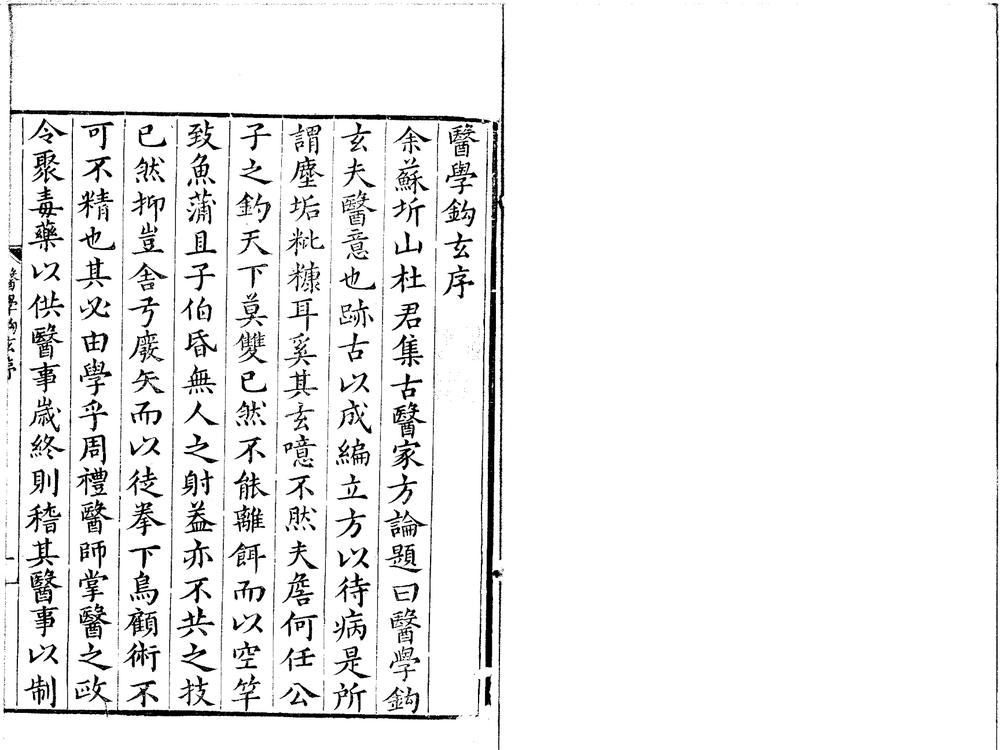 醫學鈎玄序
余蘇圻山杜君集古醫家方論題曰醫學鈎
玄夫醫意也跡古以成編立方以待病是所
謂塵垢粃糠耳奚其玄噫不然夫詹何任公
子之釣天下莫雙已然不能離餌而以空竿
致魚蒲且子伯昏無人之射蓋亦不共之技
已然抑豈舍弓廢矢而以徒拳下鳥顧術不
可不精也其必由學乎周禮醫師掌醫之政
令聚毒藥以供醫事歲終則稽其醫事以制
醫學鈎玄序
一